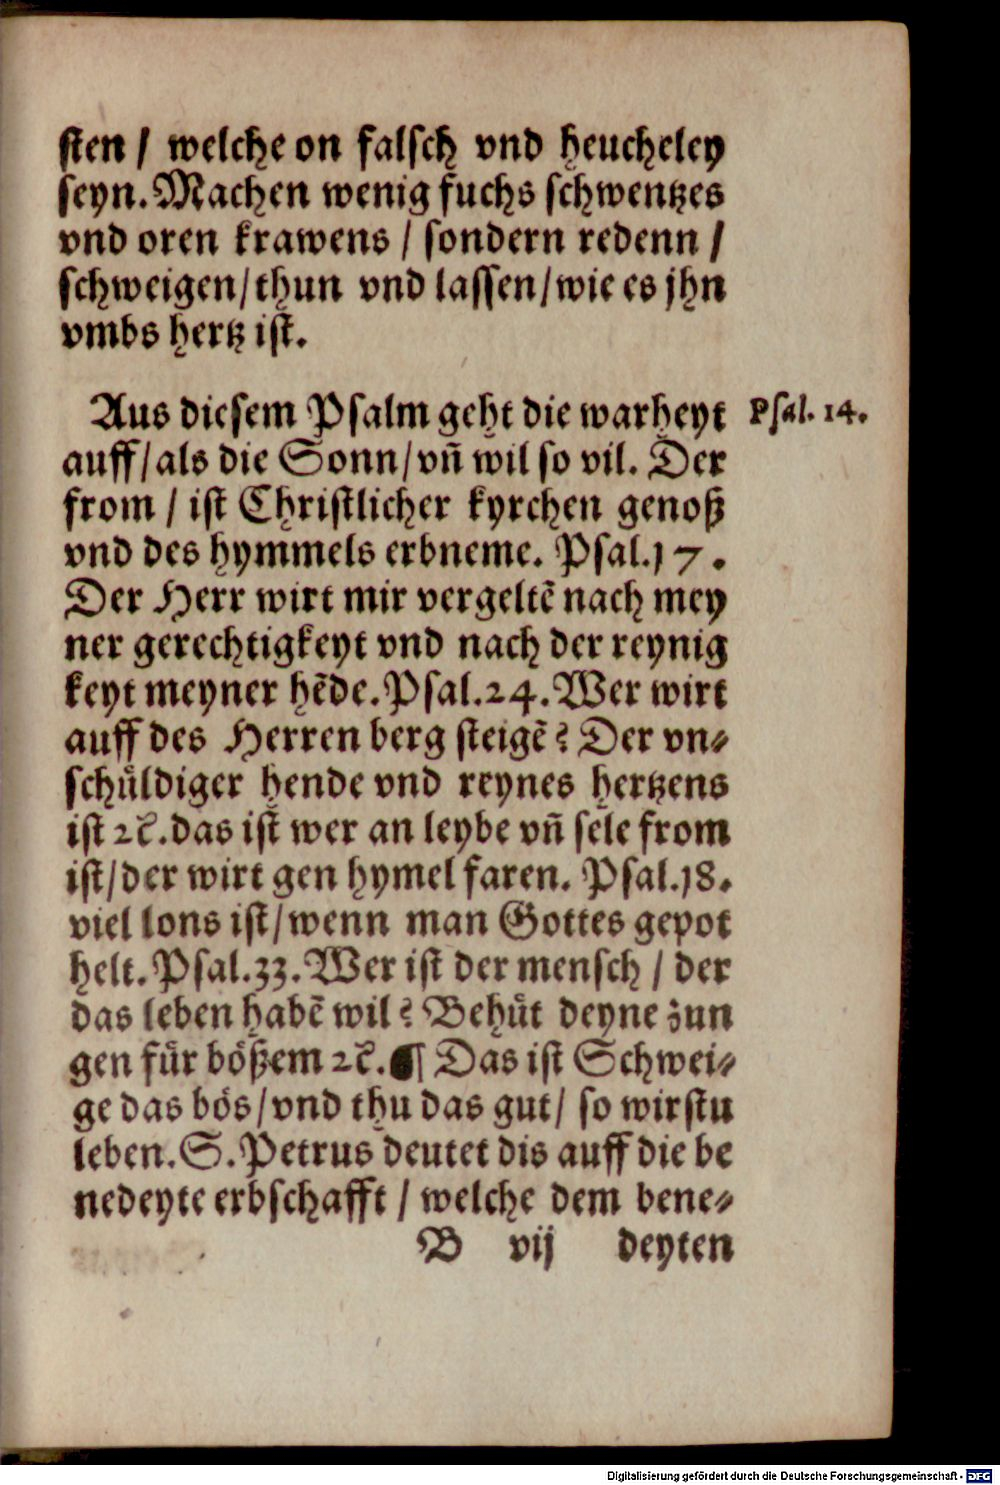 sten / welche on falsch vnd heucheley
seyn. Machen wenig fuchs schwentzes
vnd oren krawens / sondern redenn /
schweigen / thun vnd lassen / wie es jhn
vmbs hertz ist.
Aus diesem Psalm geht die warheyt
Psal. 14.
auff / als die Sonn / vñ wil so vil. Der
from / ist Christlicher kyrchen genoß
vnd des hymmels erbneme. Psal. 17.
Der Herr wirt mir vergeltẽ nach mey
ner gerechtigkeyt vnd nach der reynig
keyt meyner hẽde. Psal. 24. Wer wirt
auff des Herren berg steigẽ? Der vn⸗
schuͤldiger hende vnd reynes hertzens
ist ꝛc. das ist wer an leybe vñ sele from
ist / der wirt gen hymel faren. Psal. 18.
viel lons ist / wenn man Gottes gepot
helt. Psal. 33. Wer ist der mensch / der
das leben habẽ wil? Behuͤt deyne zun
gen fuͤr boͤßem ꝛc. ¶ Das ist Schwei⸗
ge das boͤs / vnd thu das gut / so wirstu
leben. S. Petrus deutet dis auff die be
nedeyte erbschafft / welche dem bene⸗
B vij deyten
Digitalisierung gefördert durch die Deutsche Forschungsgemeinschaft - DFG